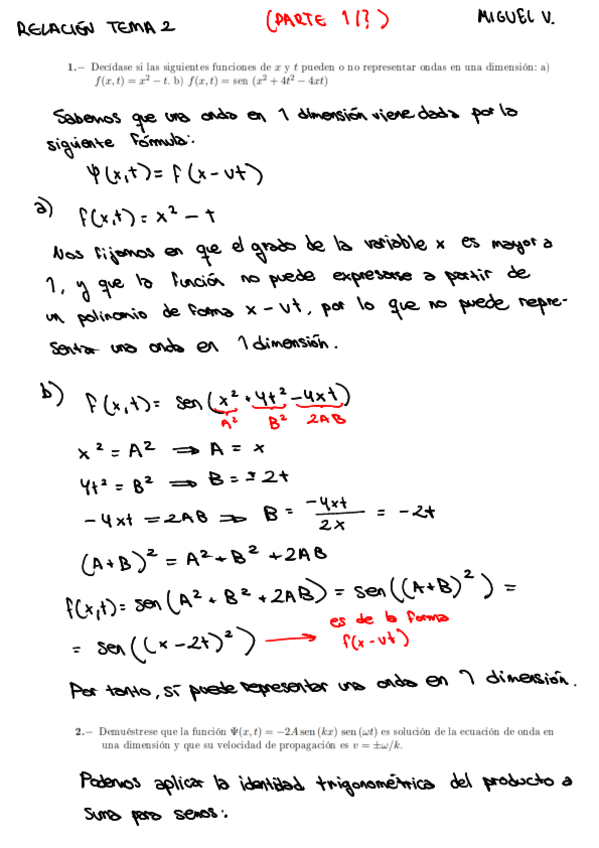 RELACIÓN TEMA 2
(PARTE 1/?)
MIGUEL V.
1.– Decídase si las siguientes funciones de x y t pueden o no representar ondas en una dimensión: a)
f(x, t) = x² − t. b) f(x, t) = sen (x² + 4t² − 4xt)
Sabemos que una onda en 1 dimensión viene dada por la
siguiente fórmula:
Ψ(x,t) = f(x-vt)
a) f(x,t) = x² - t
Nos fijamos en que el grado de la variable x es mayor a
1, y que la función no puede expresarse a partir de
un polinomio de forma x - vt, por lo que no puede repre-
sentar una onda en 1 dimensión.
b) f(x,t) = sen(x² + 4t² - 4xt)
A² B² 2AB
x² = A² ⇒ A = x
4t² = B² ⇒ B = ± 2t
-4xt = 2AB ⇒ B = -4xt / 2x = -2t
(A+B)² = A² + B² + 2AB
f(x,t) = sen(A² + B² + 2AB) = sen((A+B)²) =
es de la forma
= sen((x-2t)²) → f(x-vt)
Por tanto, sí puede representar una onda en 1 dimensión.
2.– Demuéstrese que la función Ψ(x, t) = −2A sen (kx) sen (ωt) es solución de la ecuación de onda en
una dimensión y que su velocidad de propagación es v = ±ω/k.
Podemos aplicar la identidad trigonométrica del producto a
suma para senos: